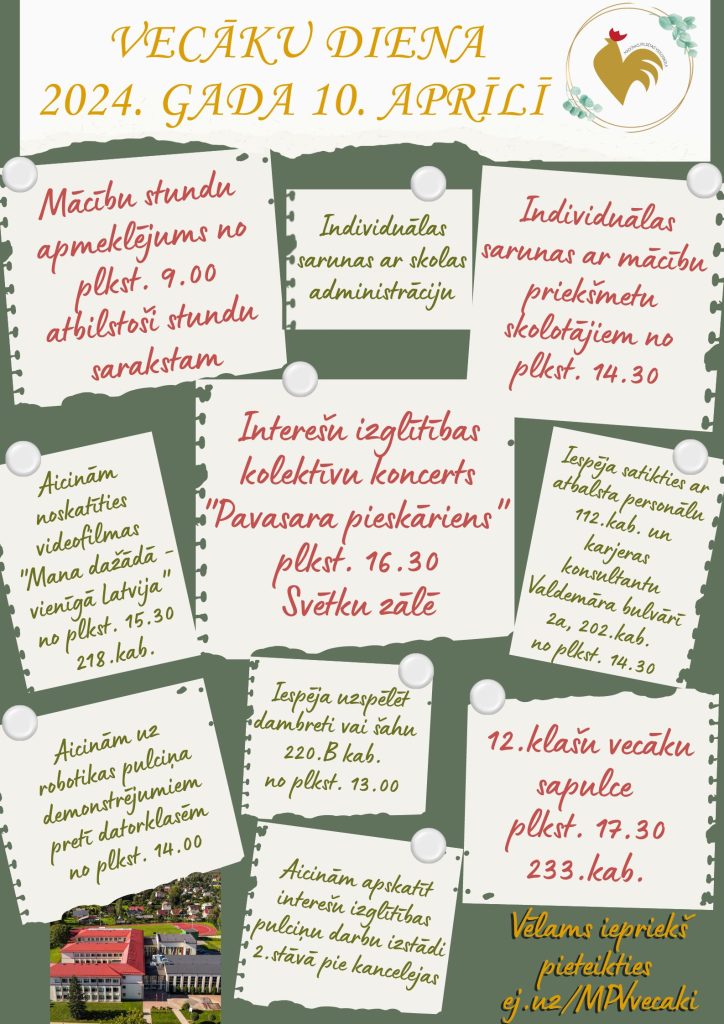 VECĀKU DIENA
2024. GADA 10. APRĪLĪ
Mācību stundu
apmeklējums no
plkst. 9.00
atbilstoši stundu
sarakstam
Individuālas
sarunas ar skolas
administrāciju
Individuālas
sarunas ar mācību
priekšmetu
skolotājiem no
plkst. 14.30
Interešu izglītības
kolektīvu koncerts
"Pavasara pieskāriens"
plkst. 16.30
Svētku zālē
Aicinām
noskatīties
videofilmas
"Mana dažādā -
vienīgā Latvija"
no plkst. 15.30
218.kab.
Iespēja satikties ar
atbalsta personālu
112.kab. un
karjeras
konsultantu
Valdemāra bulvārī
2a, 202.kab.
no plkst. 14.30
Aicinām uz
robotikas pulciņa
demonstrējumiem
pretī datorklasēm
no plkst. 14.00
Iespēja uzspēlēt
dambreti vai šahu
220.B kab.
no plkst. 13.00
12.klašu vecāku
sapulce
plkst. 17.30
233.kab.
Aicinām apskatīt
interešu izglītības
pulciņu darbu izstādi
2.stāvā pie kancelejas
Vēlams iepriekš
pieteikties
ej.uz/MPVvecaki